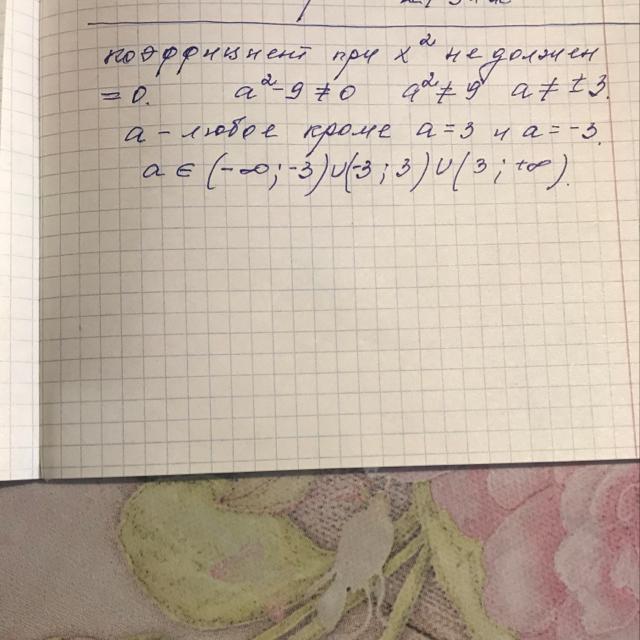 коэффициент при x² не должен
= 0. a² - 9 ≠ 0 a² ≠ 9 a ≠ ± 3.
a - любое кроме a = 3 и a = -3.
a ∈ (-∞; -3) ∪ (-3; 3) ∪ (3; +∞).